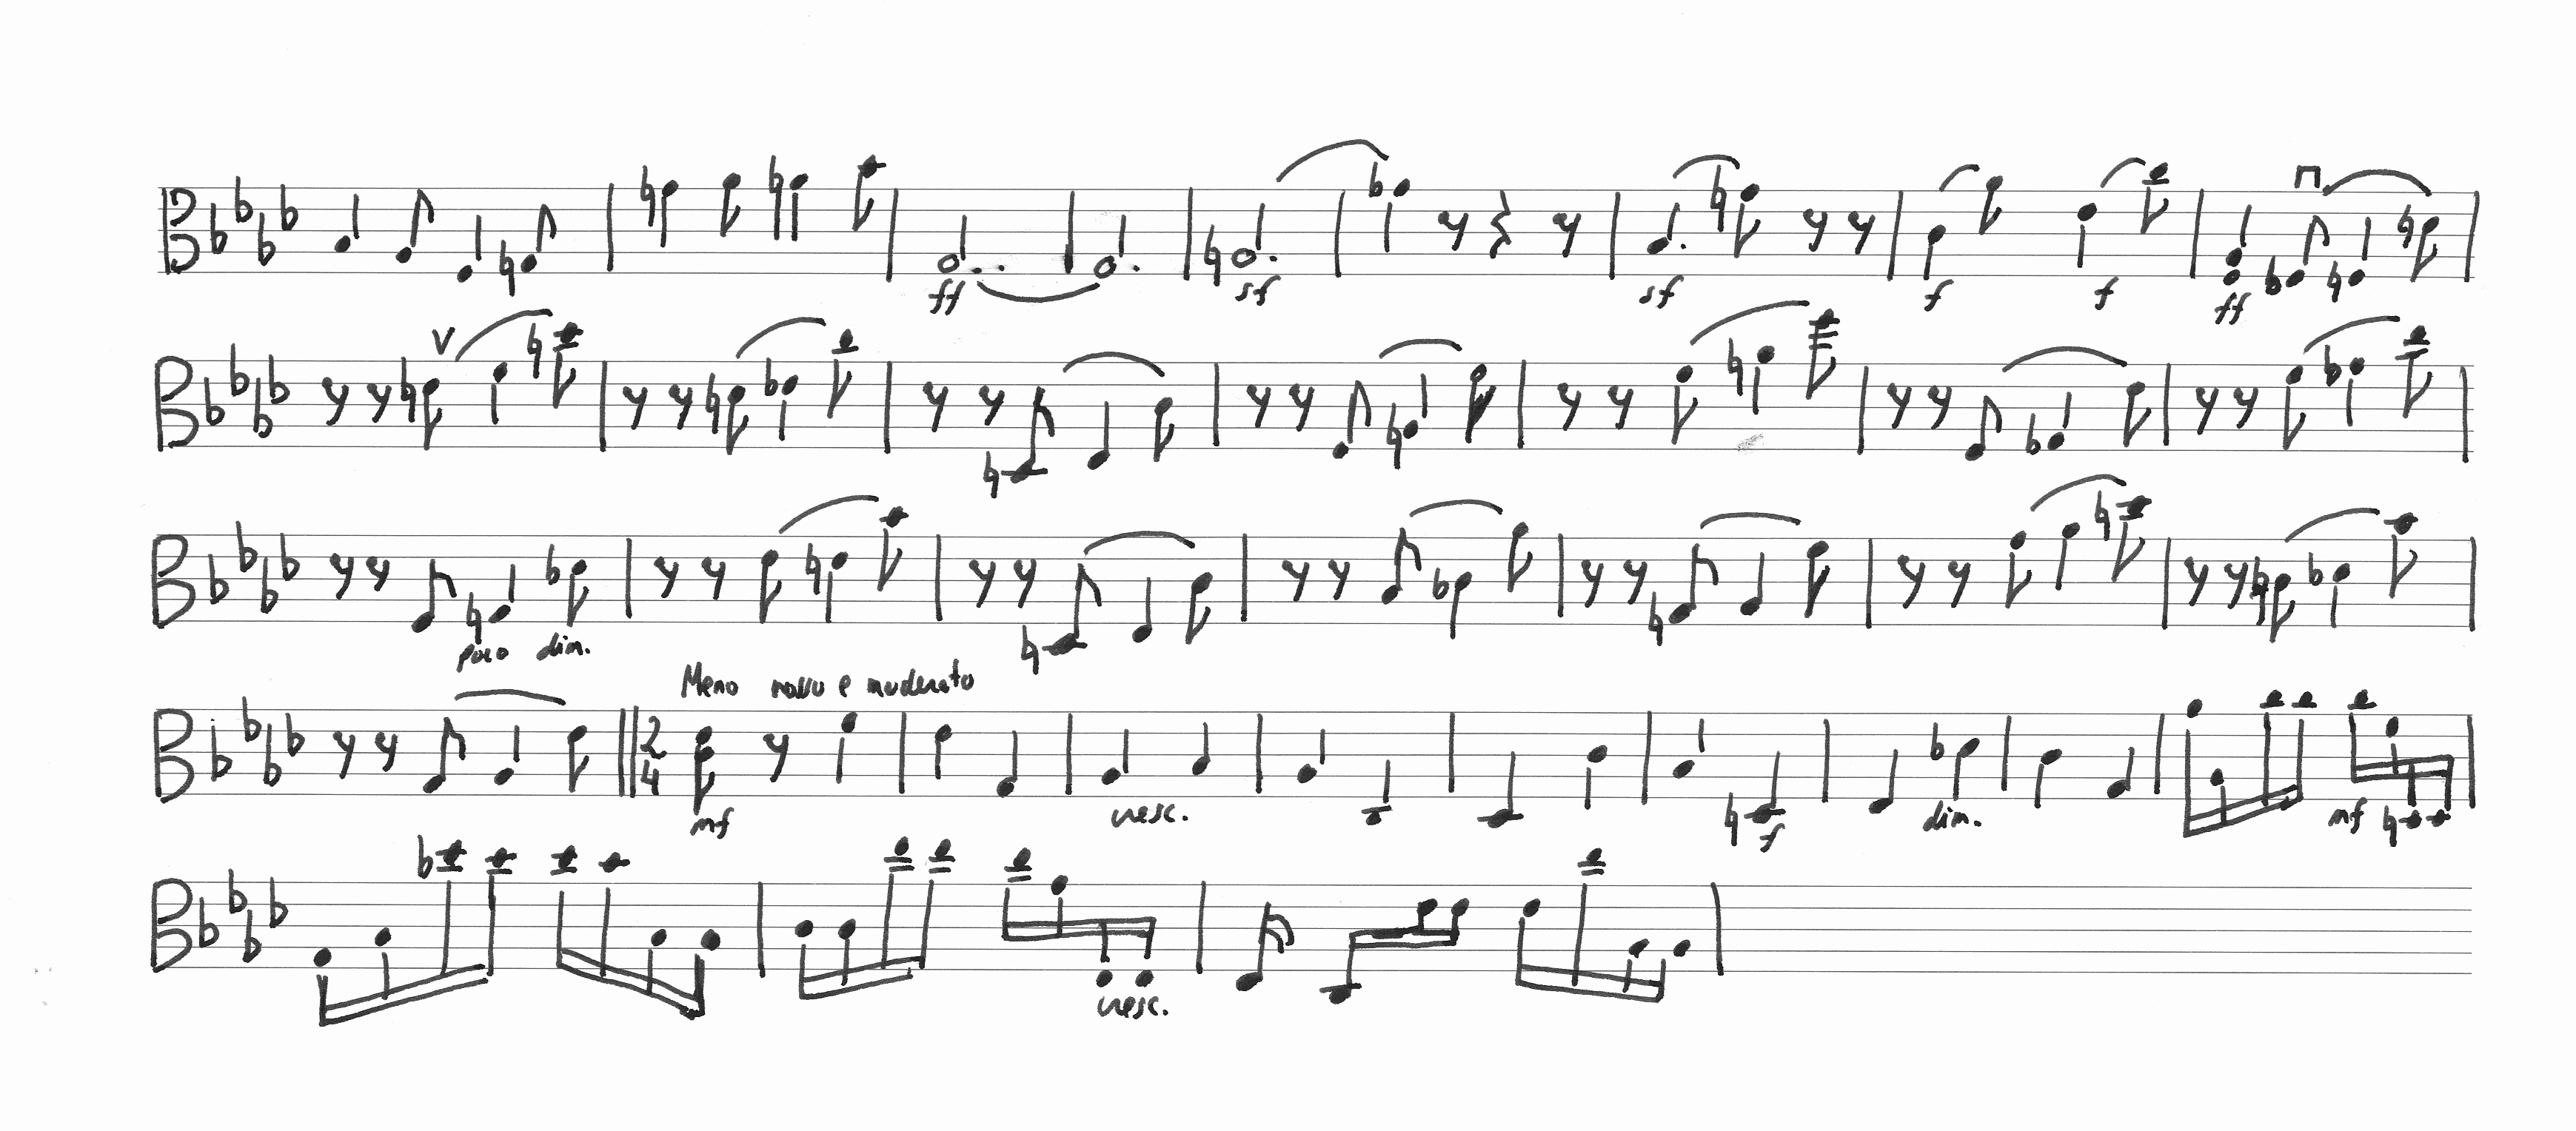 ff sf sf f f ff
poco dim.
Meno mosso e moderato
2 4
mf cresc. f dim. mf
cresc.